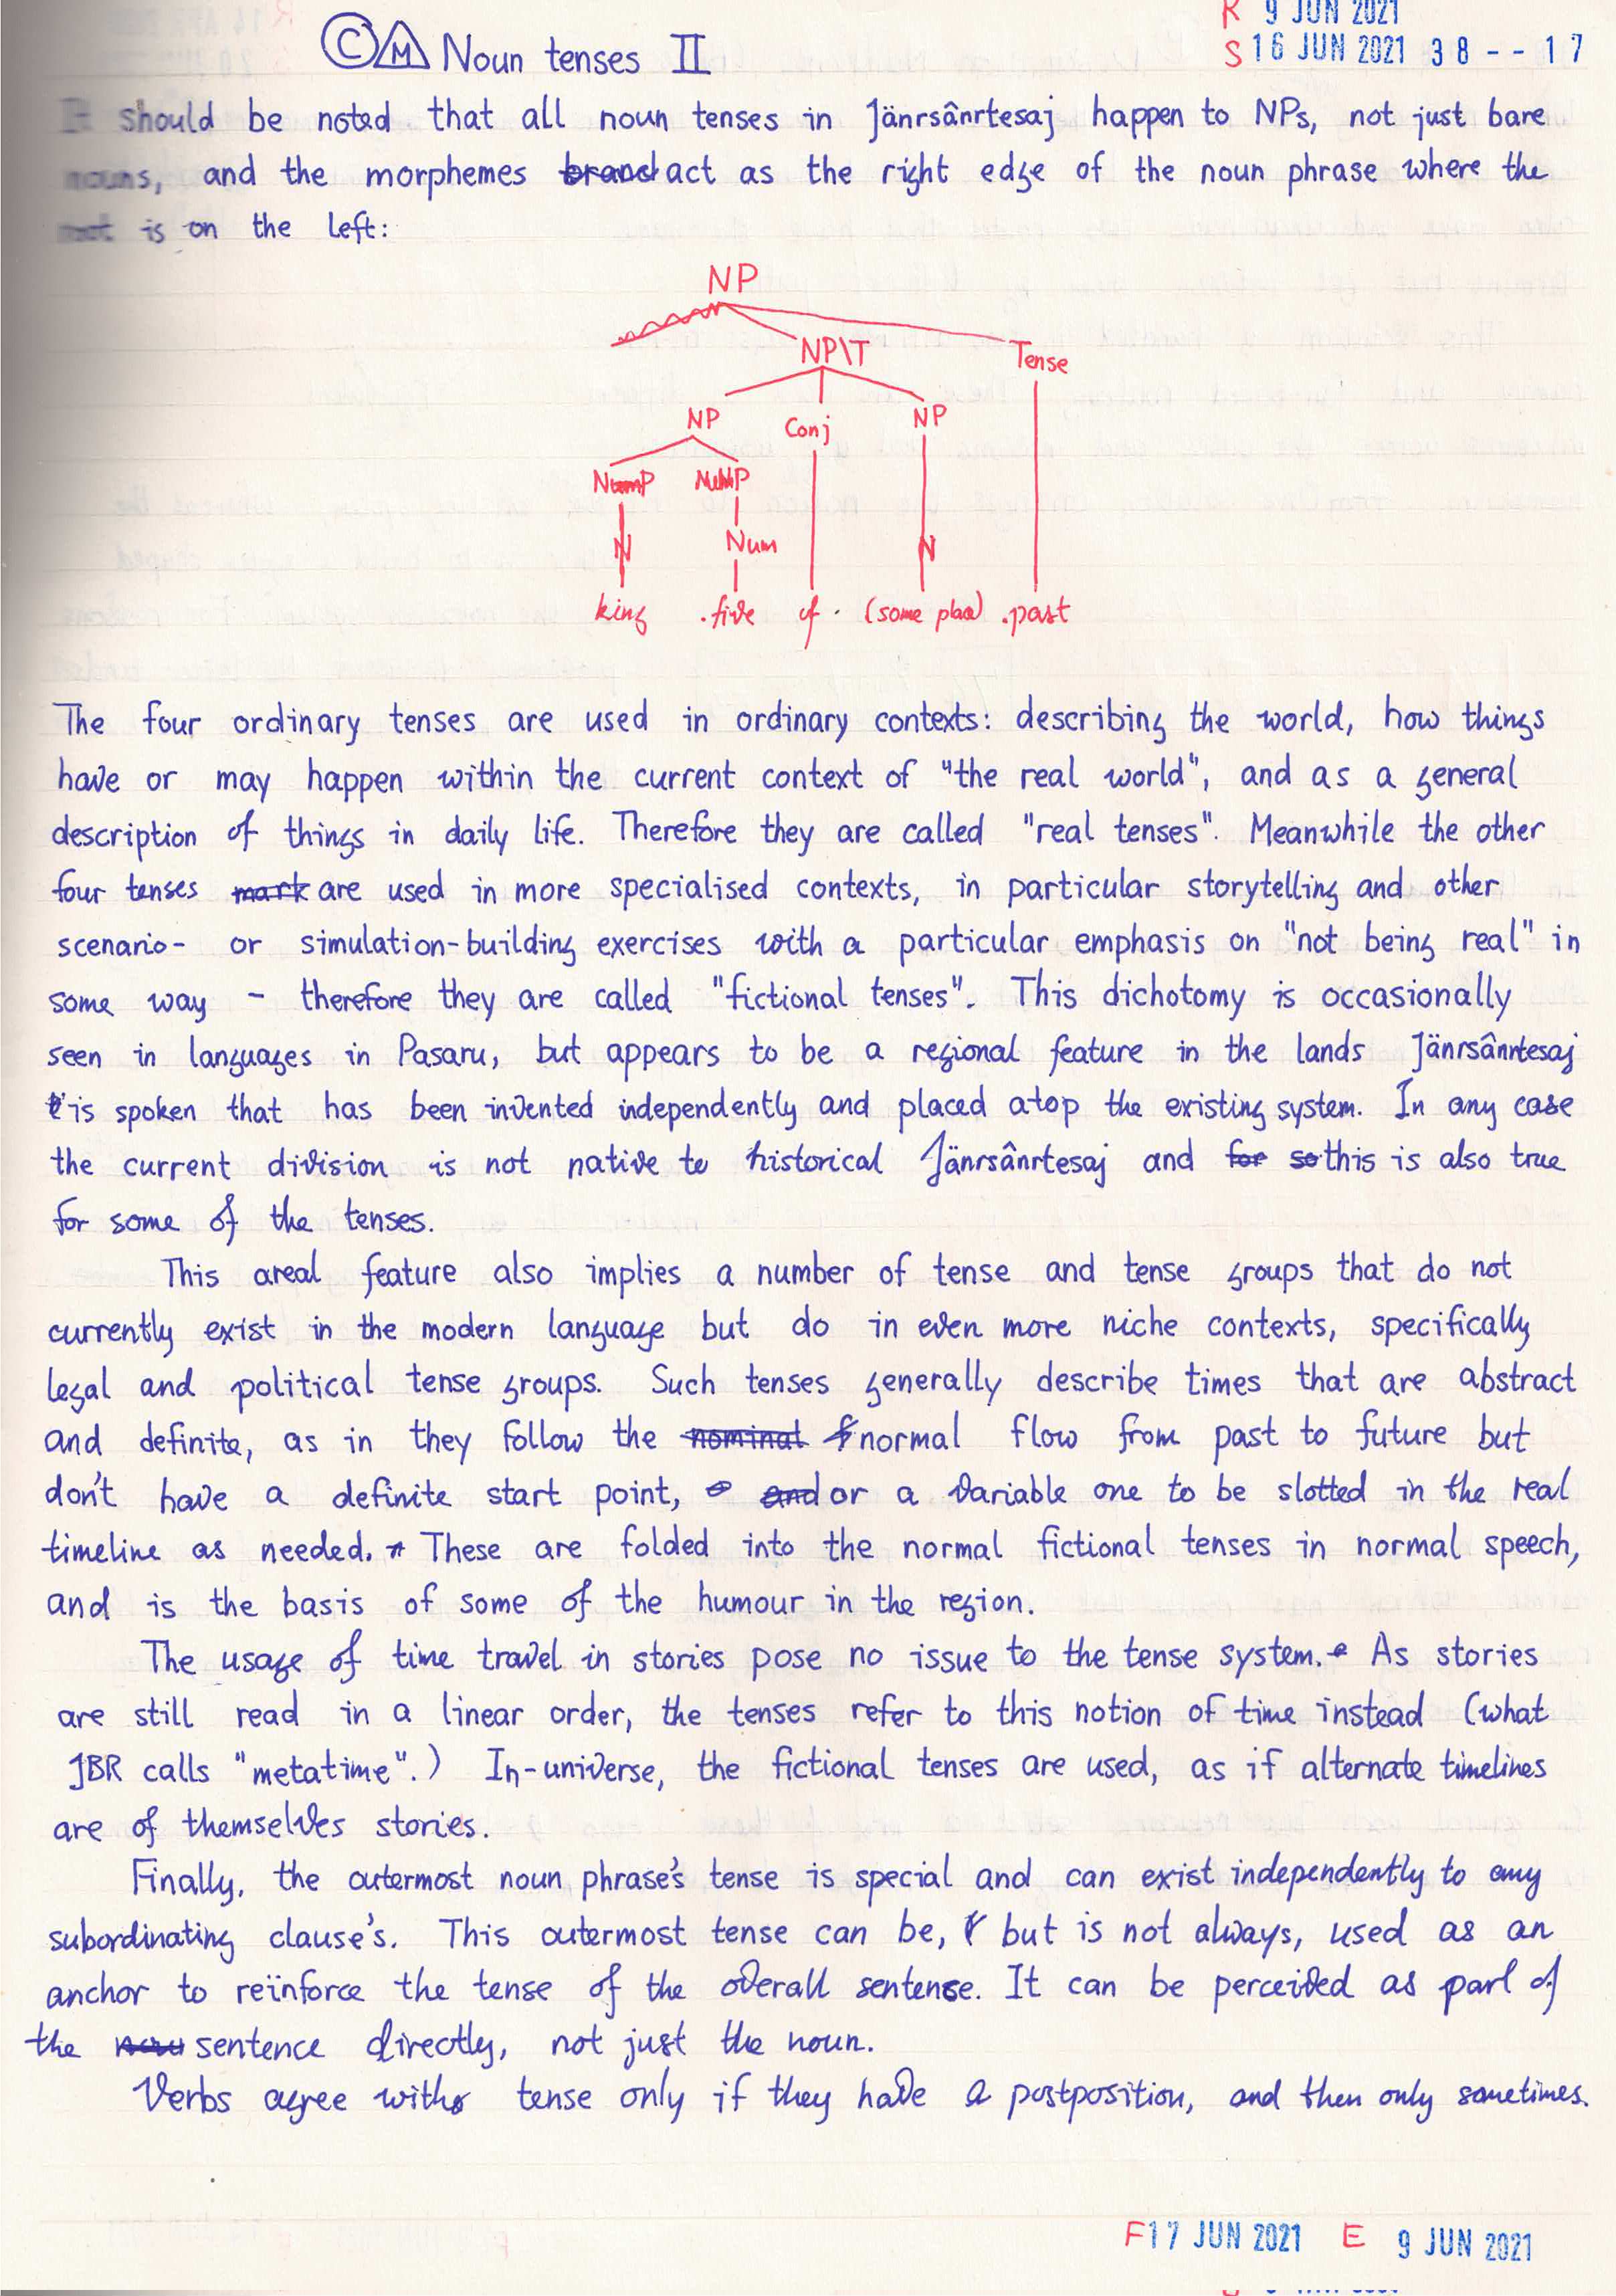 R 9 JUN 2021
C M Noun tenses II
S 16 JUN 2021 38--17
It should be noted that all noun tenses in Jänrsânrtesaj happen to NPs, not just bare
nouns, and the morphemes branch act as the right edge of the noun phrase where the
root is on the left:
NP
NP\T Tense
NP Conj NP
NumP NumP
N Num N
king .five of. (some place) .past
The four ordinary tenses are used in ordinary contexts: describing the world, how things
have or may happen within the current context of "the real world", and as a general
description of things in daily life. Therefore they are called "real tenses". Meanwhile the other
four tenses mark are used in more specialised contexts, in particular storytelling and other
scenario- or simulation-building exercises with a particular emphasis on "not being real" in
some way - therefore they are called "fictional tenses". This dichotomy is occasionally
seen in languages in Pasaru, but appears to be a regional feature in the lands Jänrsânrtesaj
is spoken that has been invented independently and placed atop the existing system. In any case
the current division is not native to historical Jänrsânrtesaj and for so this is also true
for some of the tenses.
This areal feature also implies a number of tense and tense groups that do not
currently exist in the modern language but do in even more niche contexts, specifically
legal and political tense groups. Such tenses generally describe times that are abstract
and definite, as in they follow the nominal normal flow from past to future but
don't have a definite start point, and or a variable one to be slotted in the real
timeline as needed. These are folded into the normal fictional tenses in normal speech,
and is the basis of some of the humour in the region.
The usage of time travel in stories pose no issue to the tense system. As stories
are still read in a linear order, the tenses refer to this notion of time instead (what
JBR calls "metatime".) In-universe, the fictional tenses are used, as if alternate timelines
are of themselves stories.
Finally, the outermost noun phrase's tense is special and can exist independently to any
subordinating clause's. This outermost tense can be, but is not always, used as an
anchor to reïnforce the tense of the overall sentence. It can be perceived as part of
the sentence directly, not just the noun.
Verbs agree with tense only if they have a postposition, and then only sometimes.
F 17 JUN 2021 E 9 JUN 2021